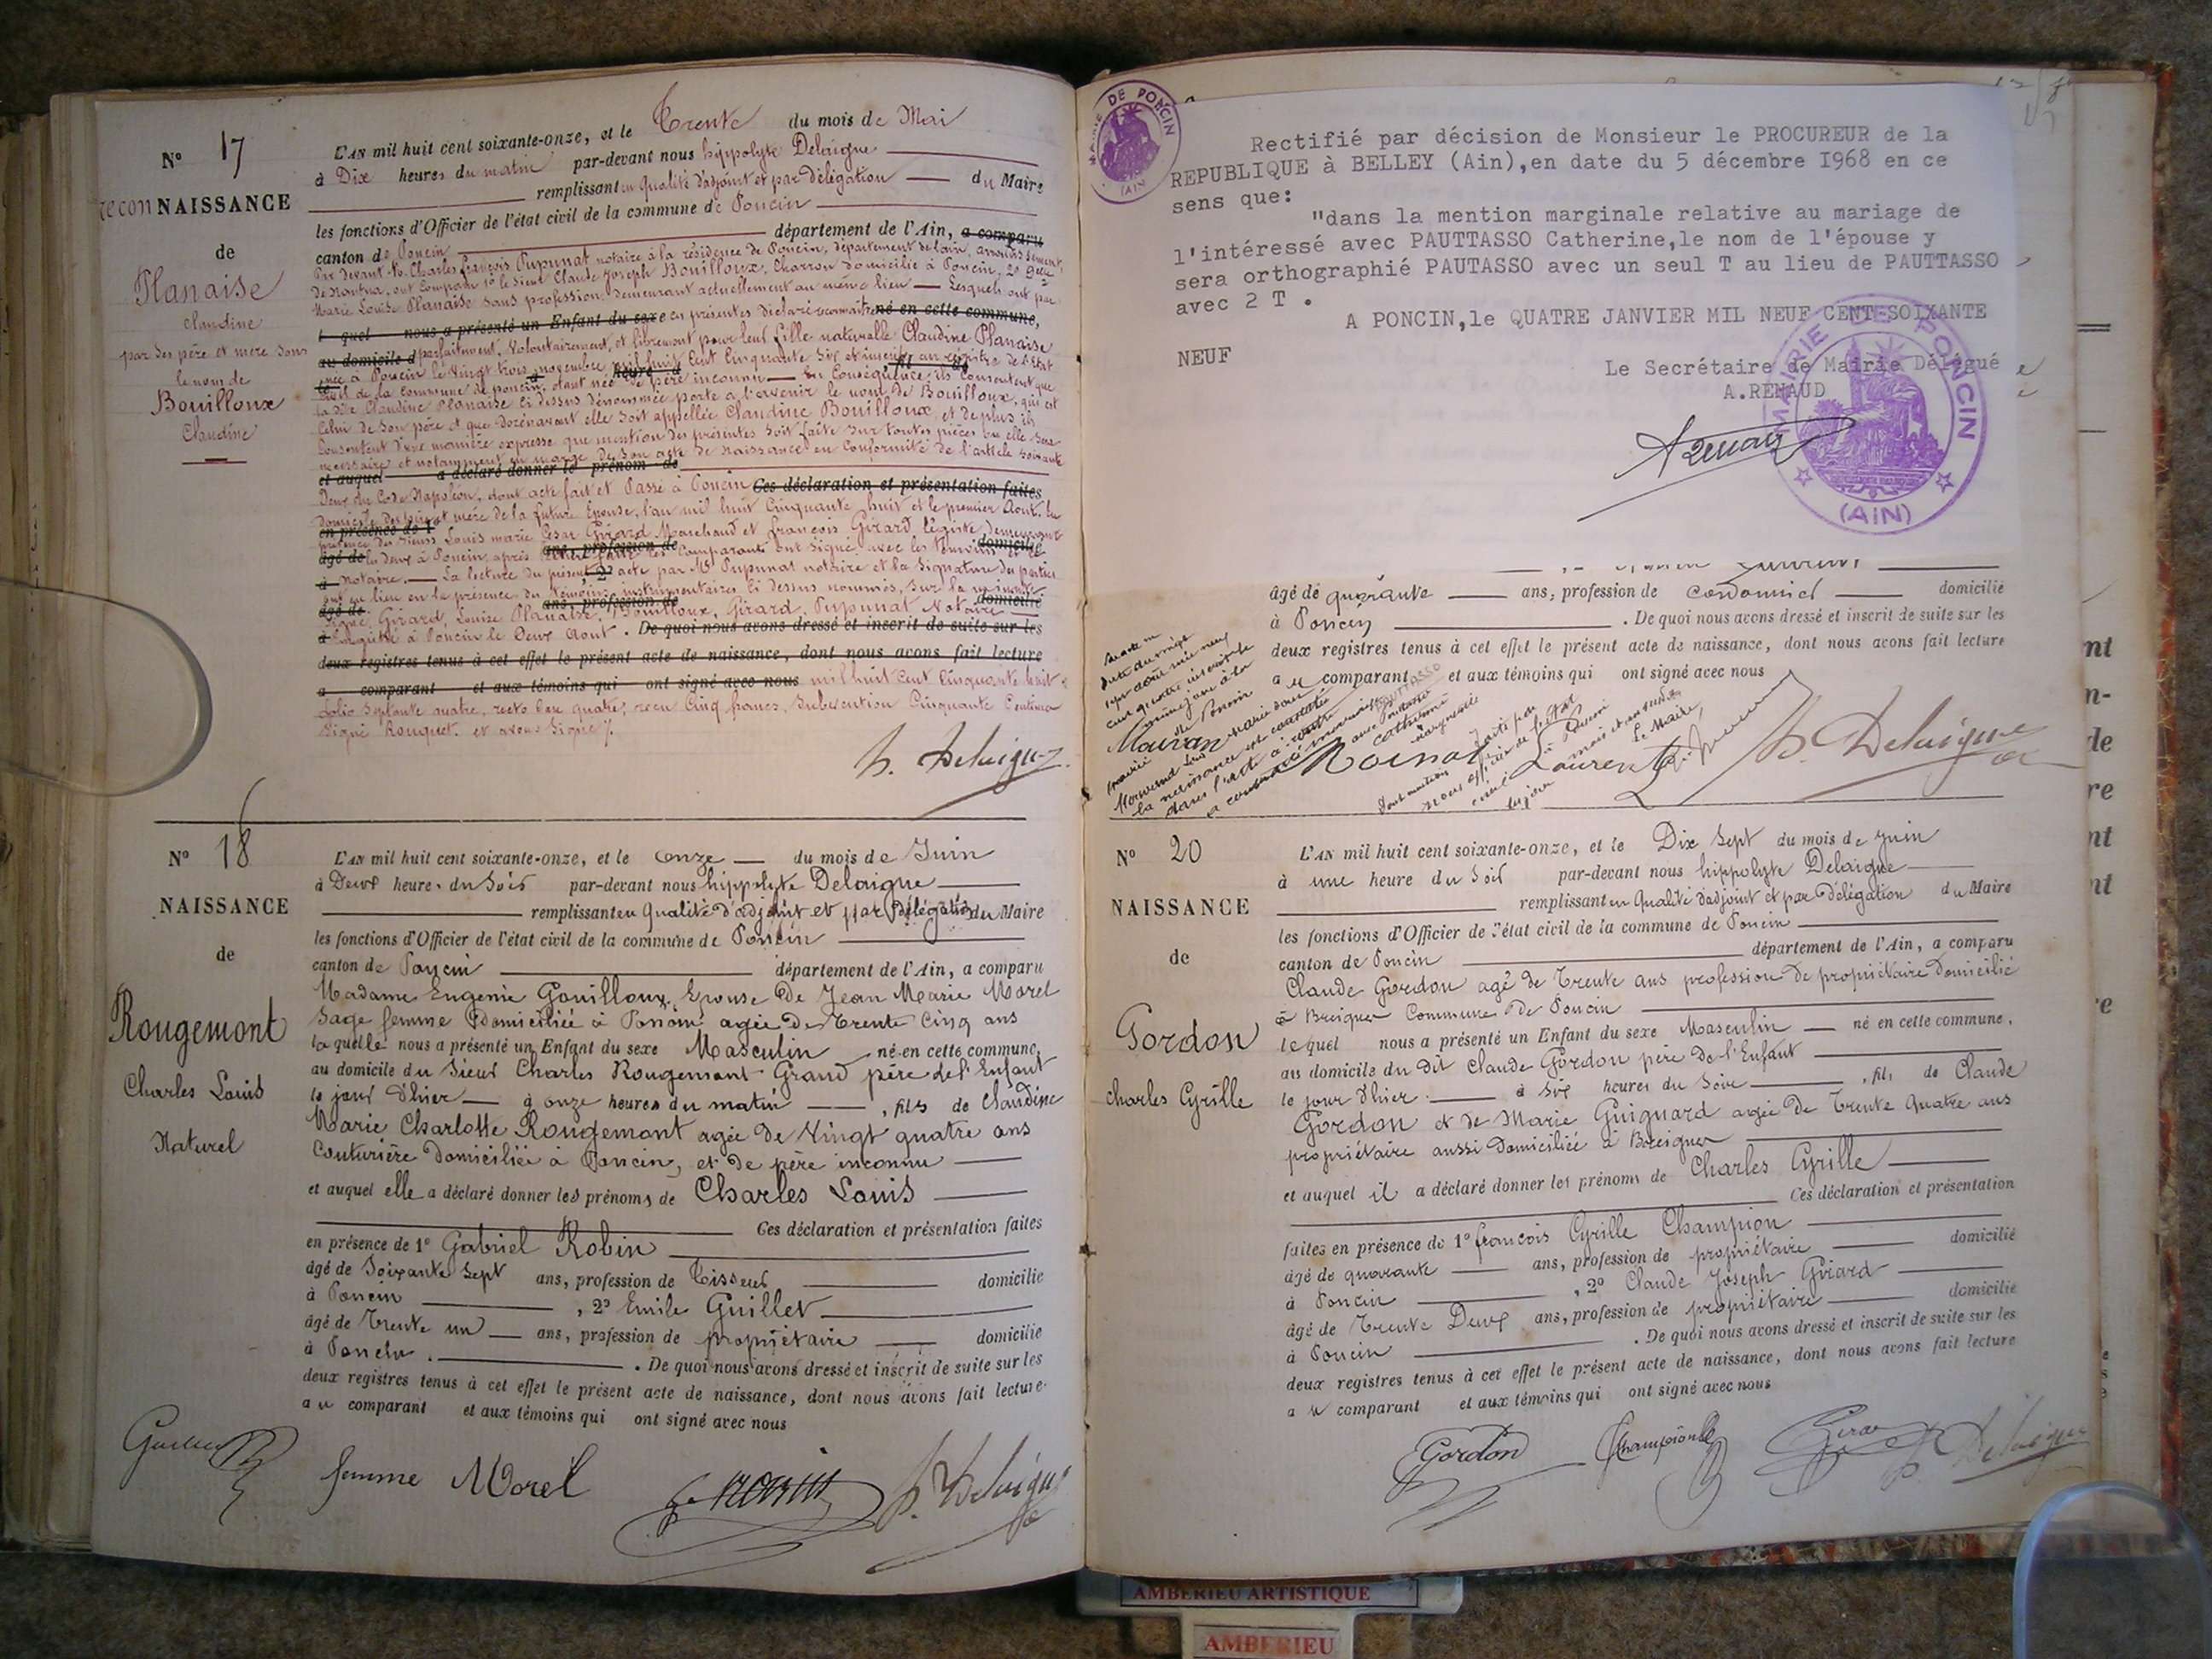 N° 17
reconNAISSANCE
de
Planaise
Claudine
par ses père et mère sous
le nom de
Bouilloux
Claudine
L'AN mil huit cent soixante-onze, et le Trente du mois de Mai
à Dix heures du matin par-devant nous hippolyte Delaigue
remplissant en qualité d'adjoint et par délégation du Maire
les fonctions d'Officier de l'état civil de la commune de Poncin
canton de Poncin département de l'Ain, a comparu
Par devant Me Charles françois Pupunat notaire à la résidence de Poncin, département de l'ain, arrondissement
de Nantua, ont comparu 1° le sieur Claude Joseph Bouilloux, Charron domicilié à Poncin, 2°
Marie Louise Planaise sans profession demeurant actuellement au même lieu Lesquels ont par
l quel nous a présenté un Enfant du sexe ces présentes déclaré reconnaître né en cette commune,
au domicile d parfaitement, Volontairement, et librement pour leur fille naturelle Claudine Planaise
née à Poncin le vingt trois novembre mil huit Cent Cinquante Six et inscrite au registre de l'état
Civil de la Commune de poncin, dont née de père inconnu En Conséquence, ils Consentent que
la dite Claudine Planaise ci dessus dénommée porte à l'avenir le nom de Bouilloux, qui est
Celui de son père et que dorénavant elle soit appellée Claudine Bouilloux et de plus ils
Consentent d'une manière expresse que mention des présentes soit faite sur toutes pièces ou elle sera
necessaire et notamment en marge de son acte de naissance en Conformité de l'article soixante
et auquel a déclaré donner le prénom de
Deux du Code Napoléon, dont acte fait et Passé à Poncin Ces déclaration et présentation faites
domicile des père et mère de la future Epouse, l'an mil huit Cinquante huit et le premier Aout. En
en présence de 1°
présence des sieurs Louis marie César Girard Marchand et françois Girard légiste, demeurant
âgé de les deux à Poncin après lecture faite les Comparants ont signé avec les temoins et le
à notaire. La lecture du présent acte par Me Pupunat notaire et la signature des parties
ont eu lieu en la présence des témoins instrumentaires ci dessus nommés, sur la minute
signé Girard, Louise Planaise, Bouilloux, Girard, Pupunat Notaire
Enregistré à Poncin le Deux Aout. De quoi nous avons dressé et inscrit de suite sur les
deux registres tenus à cet effet le présent acte de naissance, dont nous avons fait lecture
a comparant et aux témoins qui ont signé avec nous mil huit Cent Cinquante huit
folio septante quatre, recto Case quatre, reçu Cinq francs, subvention Cinquante Centimes
Signé Rouquet. et avons Signé
h. Delaigue
N° 18
NAISSANCE
de
Rougemont
Charles Louis
Naturel
L'AN mil huit cent soixante-onze, et le onze du mois de Juin
à Deux heures du Soir par-devant nous hippolyte Delaigue
remplissant en Qualité d'adjoint et par Délégation du Maire
les fonctions d'Officier de l'état civil de la commune de Poncin
canton de Poncin département de l'Ain, a comparu
Madame Eugenie Gouilloux, Epouse De Jean Marie Morel
Sage femme Domiciliée à Poncin agée De trente Cinq ans
laquelle nous a présenté un Enfant du sexe Masculin né en cette commune,
au domicile du Sieur Charles Rougemont Grand père de l'Enfant
le jour d'hier à onze heures du matin , fils de Claudine
Marie Charlotte Rougemont agée de Vingt quatre ans
Couturière Domiciliée à Poncin, et de père inconnu
et auquel elle a déclaré donner les prénoms de Charles Louis
Ces déclaration et présentation faites
en présence de 1° Gabriel Robin
âgé de Soixante Sept ans, profession de Tisseur domicilié
à Poncin , 2° Emile Guillet
âgé de Trente un ans, profession de propriétaire domicilié
à Poncin . De quoi nous avons dressé et inscrit de suite sur les
deux registres tenus à cet effet le présent acte de naissance, dont nous avons fait lecture
au comparant et aux témoins qui ont signé avec nous
femme Morel
h. Delaigue
MAIRIE DE PONCIN
(AIN)
Rectifié par décision de Monsieur le PROCUREUR de la
REPUBLIQUE à BELLEY (Ain),en date du 5 décembre I968 en ce
sens que:
"dans la mention marginale relative au mariage de
l'intéressé avec PAUTTASSO Catherine,le nom de l'épouse y
sera orthographié PAUTASSO avec un seul T au lieu de PAUTTASSO
avec 2 T .
A PONCIN,le QUATRE JANVIER MIL NEUF CENT SOIXANTE
NEUF
Le Secrétaire de Mairie Délégué
A.RENAUD
MAIRIE DE PONCIN
(AIN)
âgé de quarante ans, profession de Cordonnier domicilié
à Poncin . De quoi nous avons dressé et inscrit de suite sur les
deux registres tenus à cet effet le présent acte de naissance, dont nous avons fait lecture
au comparant et aux témoins qui ont signé avec nous
Laurent
h. Delaigue
N° 20
NAISSANCE
de
Gordon
Charles Cyrille
L'AN mil huit cent soixante-onze, et le Dix Sept du mois de Juin
à une heure du Soir par-devant nous hippolyte Delaigue
remplissant en Qualité d'adjoint et par Délégation du Maire
les fonctions d'Officier de l'état civil de la commune de Poncin
canton de Poncin département de l'Ain, a comparu
Claude Gordon agé de Trente ans profession de propriétaire Domicilié
à Breignes Commune De Poncin
lequel nous a présenté un Enfant du sexe Masculin né en cette commune,
au domicile du Dit Claude Gordon père de l'Enfant
le jour d'hier à Six heures du Soir , fils de Claude
Gordon et de Marie Guignard agée De Trente Quatre ans
propriétaire aussi Domiciliée à Breignes
et auquel il a déclaré donner les prénoms de Charles Cyrille
Ces déclaration et présentation
faites en présence de 1° françois Cyrille Champion
âgé de quarante ans, profession de propriétaire domicilié
à Poncin , 2° Claude Joseph Girard
âgé de Trente Deux ans, profession de propriétaire domicilié
à Poncin . De quoi nous avons dressé et inscrit de suite sur les
deux registres tenus à cet effet le présent acte de naissance, dont nous avons fait lecture
au comparant et aux témoins qui ont signé avec nous
Gordon Champion Girard h. Delaigue
AMBERIEU ARTISTIQUE
AMBERIEU